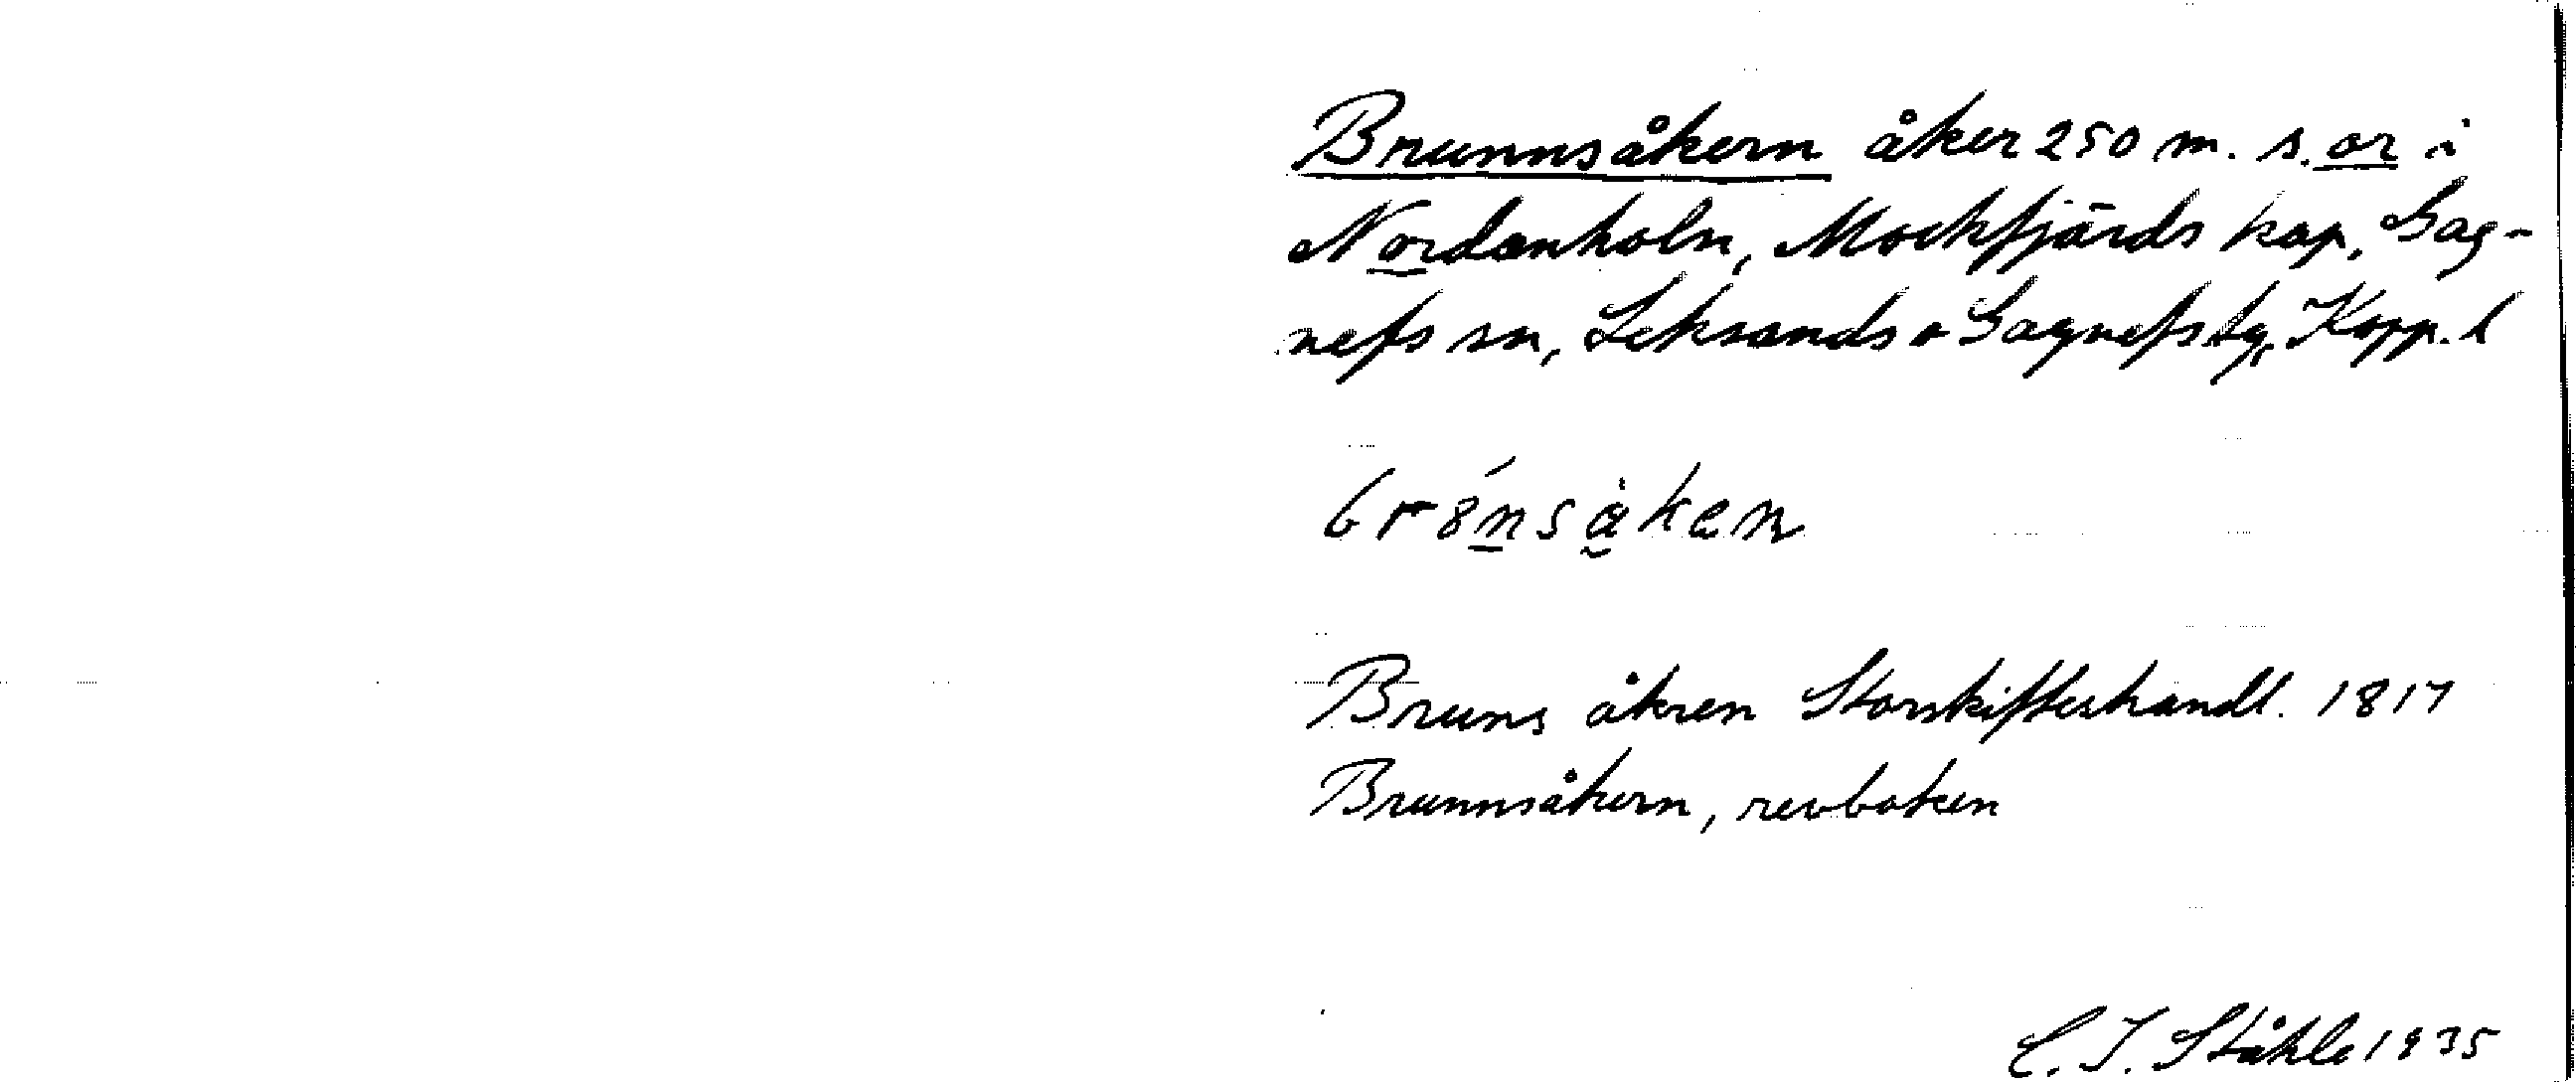 Brunnsåkern åker 250 m. s. or i
Nordanholn, Mockfjärds kap, Gag-
nefs sn, Leksands o Gagnefs tg, Kopp. l
br8́nsåken
Bruns åkren Storskifteshandl. 1817
Brunnsåkern, revboken
C. I. Ståhle 1935